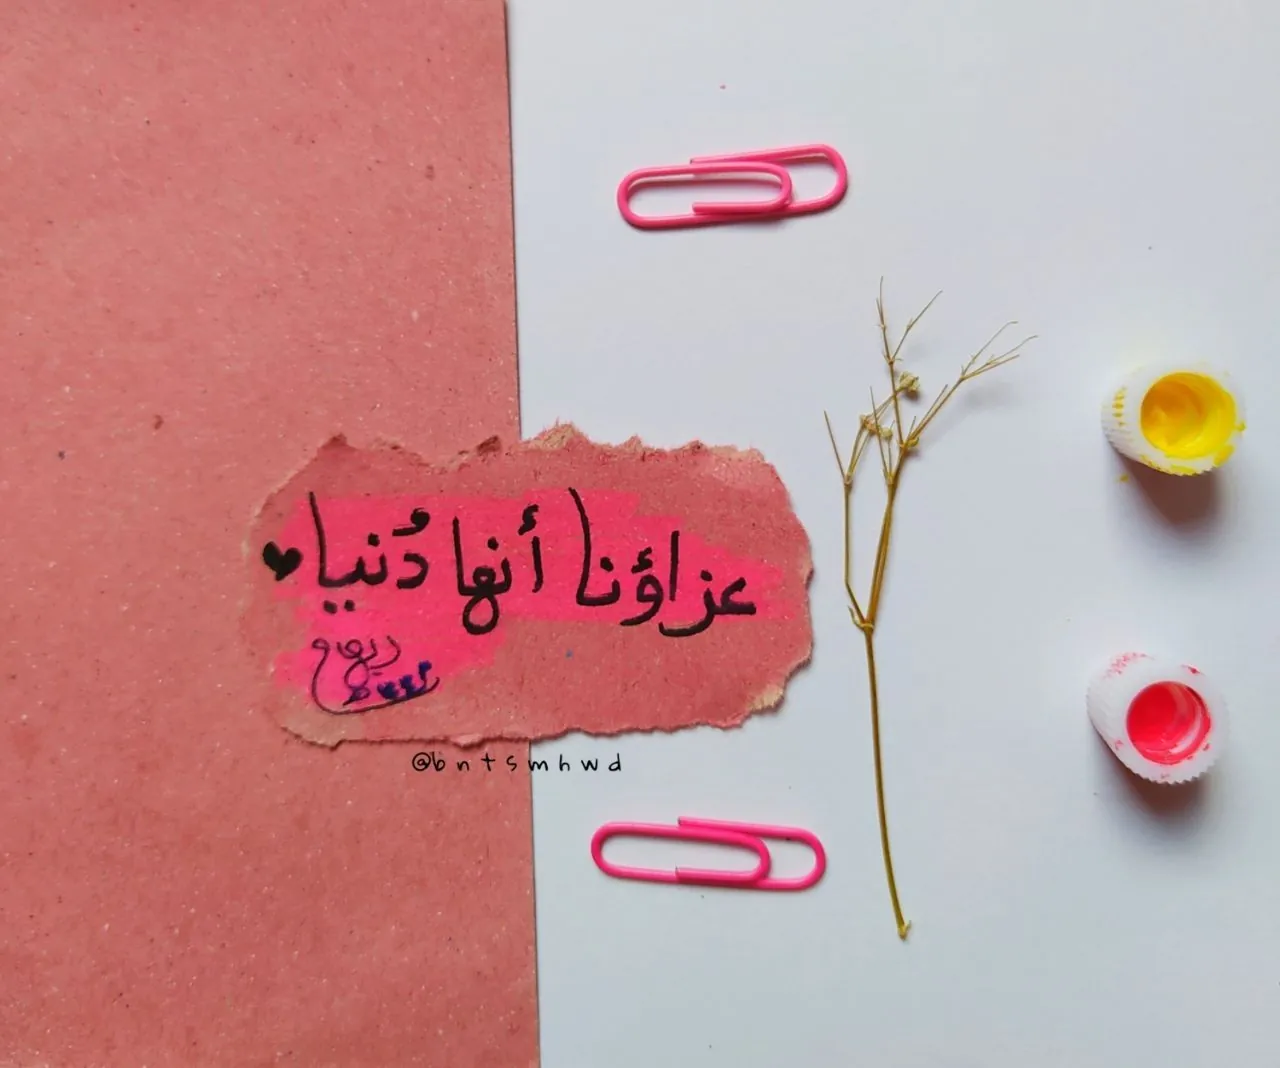 عزاؤنا أنها دُنيا
ريهام
@bntsmhwd